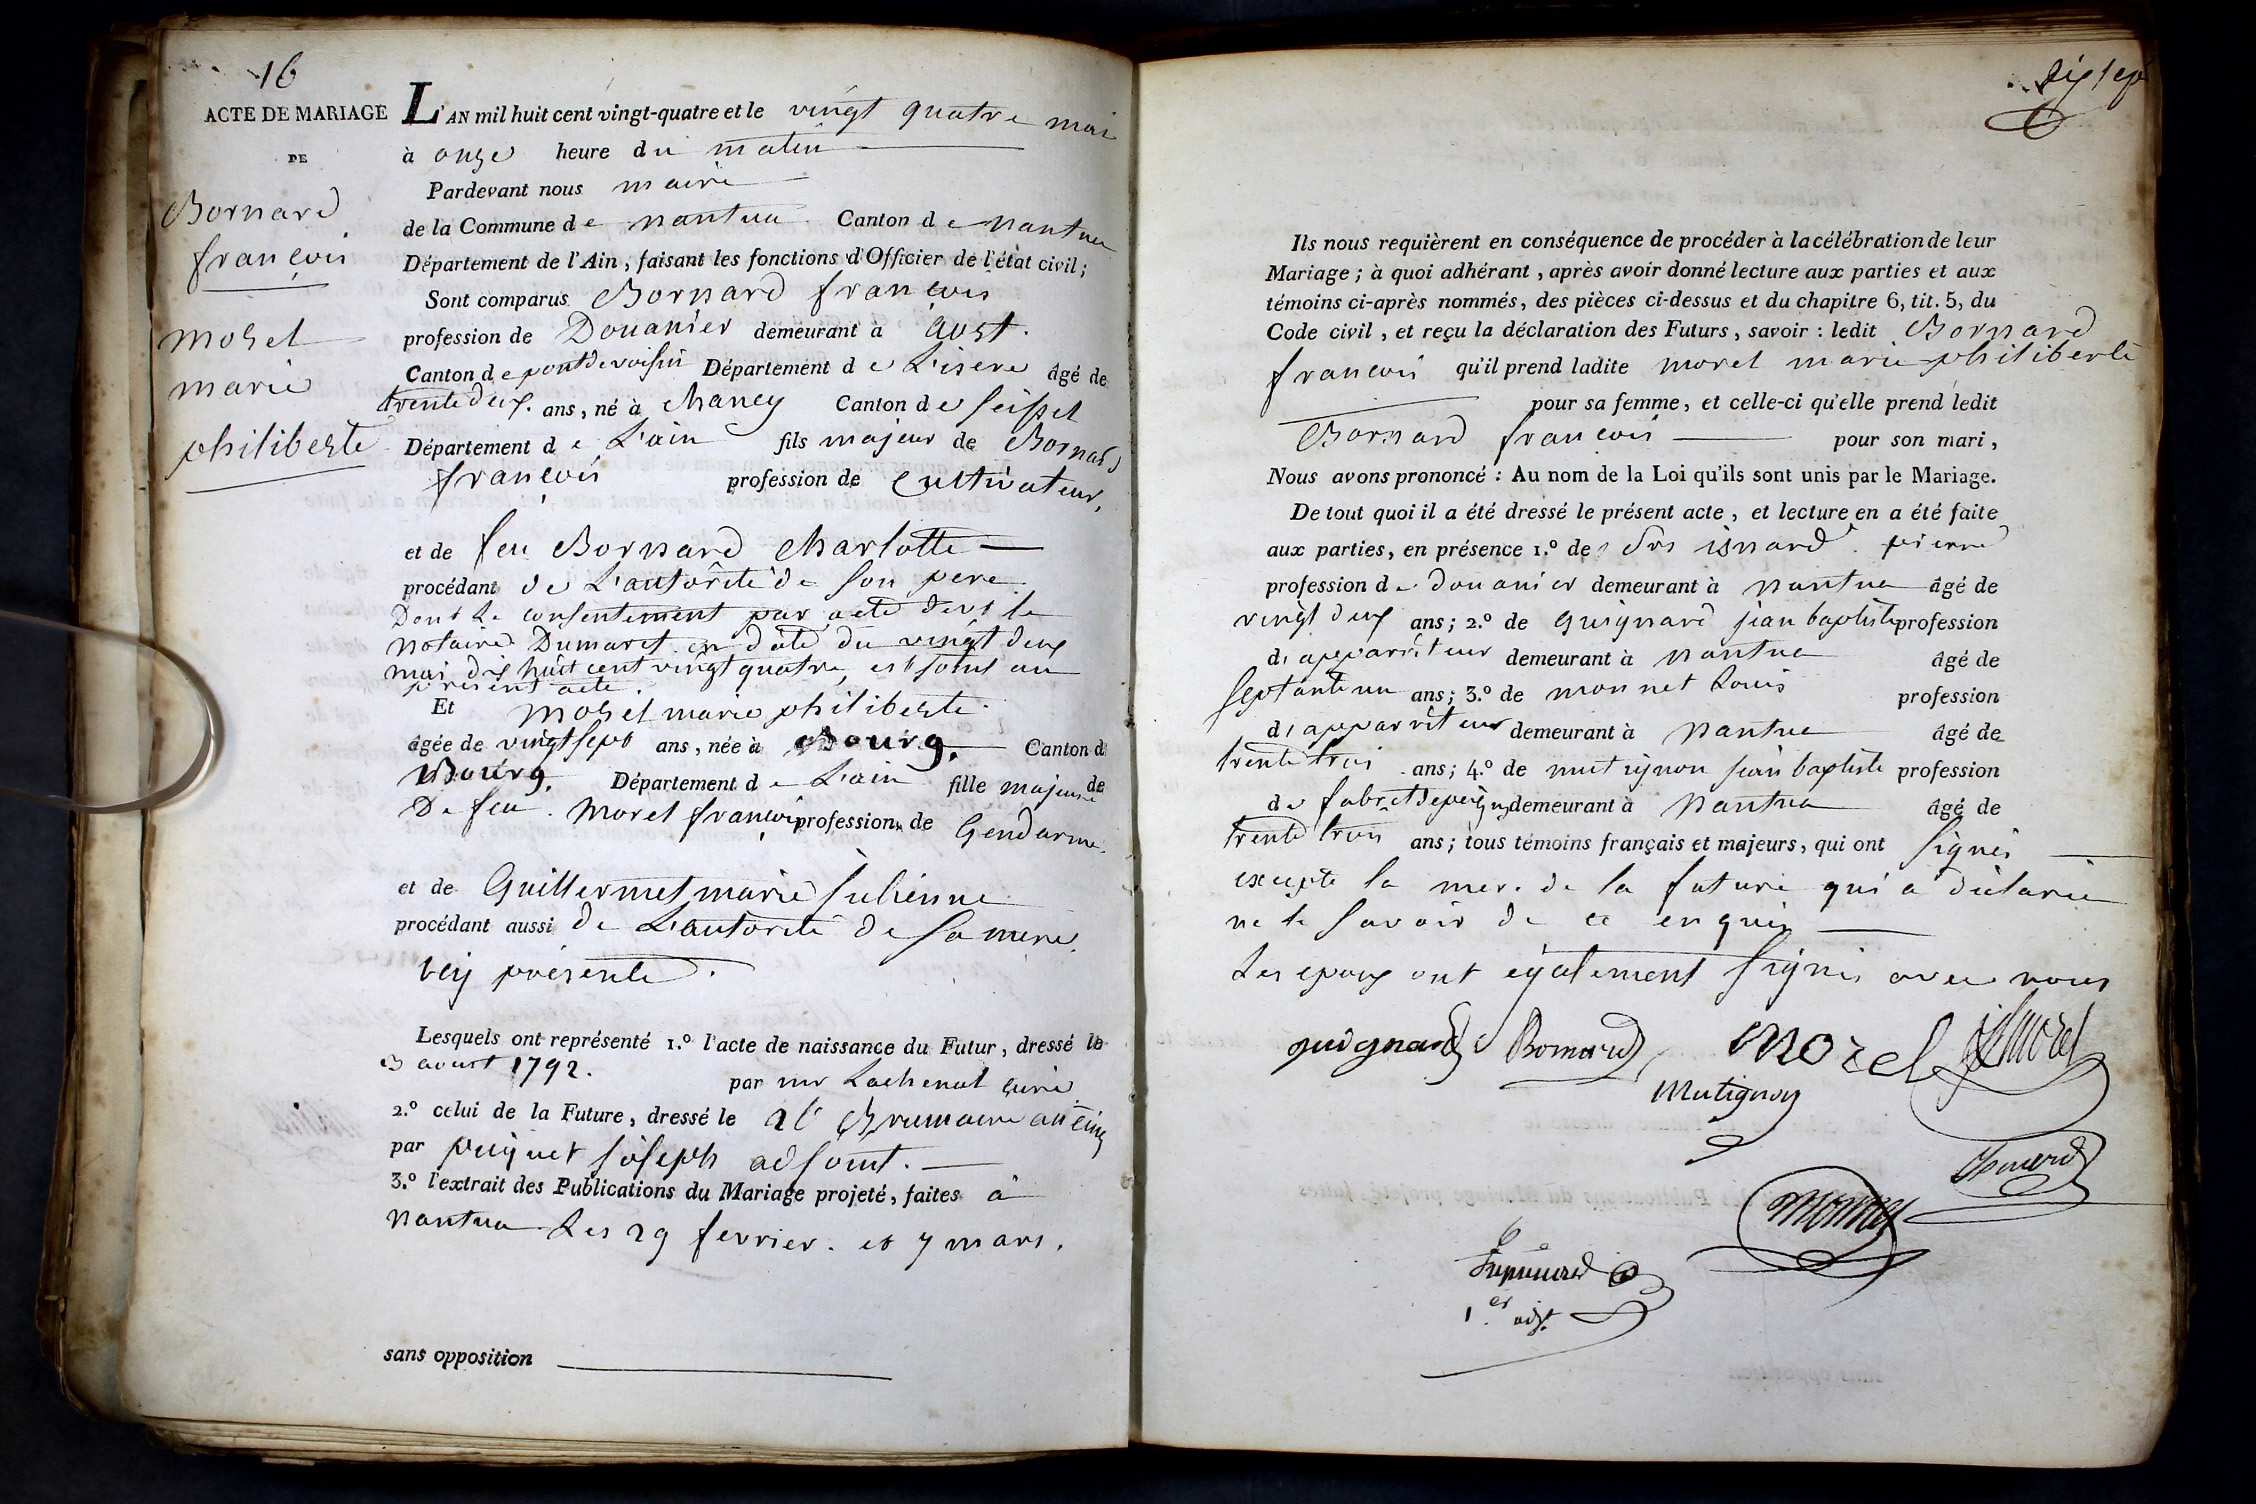 16
ACTE DE MARIAGE
DE
Bornard
françois
morel
marie
philiberte
L'AN mil huit cent vingt-quatre et le vingt quatre mai
à onze heure du matin
Pardevant nous maire
de la Commune de nantua Canton de nantua
Département de l'Ain, faisant les fonctions d'Officier de l'état civil;
Sont comparus Bornard françois
profession de Douanier demeurant à aost.
Canton de pontdevoisin Département de L'isere âgé de
trente deux ans, né à chaney Canton de seissel
Département de L'ain fils majeur de Bornard
françois profession de Cultivateur,
et de feu Bornard charlotte
procédant de L'autorité de son pere
Dont le consentement par acte devt le
notaire Dumaret en date du vingt deux
mai dix huit cent vingt quatre, est joint au
présent acte.
Et morel marie philiberte.
âgée de vingt sept ans, née à Bourg. Canton d
Bourg. Département de L'ain fille majeure de
De feu morel françois profession de Gendarme.
et de Guillermet marie julienne
procédant aussi de L'autorité de sa mere
ici présente.
Lesquels ont représenté 1.º l'acte de naissance du Futur, dressé le
3 aoust 1792. par mr Lachenal curé
2.º celui de la Future, dressé le Brumaire an cinq
par puget joseph adjoint.
3.º l'extrait des Publications du Mariage projeté, faites à
nantua Les 29 fevrier. et 7 mars.
sans opposition
dix sept
Ils nous requièrent en conséquence de procéder à la célébration de leur
Mariage; à quoi adhérant, après avoir donné lecture aux parties et aux
témoins ci-après nommés, des pièces ci-dessus et du chapitre 6, tit. 5, du
Code civil, et reçu la déclaration des Futurs, savoir: ledit Bornard
françois qu'il prend ladite morel marie philiberte
pour sa femme, et celle-ci qu'elle prend ledit
Bornard françois pour son mari,
Nous avons prononcé: Au nom de la Loi qu'ils sont unis par le Mariage.
De tout quoi il a été dressé le présent acte, et lecture en a été faite
aux parties, en présence 1.º de Srs isnard pierre
profession de douanier demeurant à nantua âgé de
vingt deux ans; 2.º de guignard jean baptiste profession
d'apparriteur demeurant à nantua âgé de
septante un ans; 3.º de monnet Louis profession
d'apparriteur demeurant à nantua âgé de
trente trois ans; 4.º de mutignon jean baptiste profession
de fabrt de peignes demeurant à nantua âgé de
trente trois ans; tous témoins français et majeurs, qui ont signés
excepte la mere de la future qui a déclaré
ne le savoir de ce enquis
Les epoux ont également signé avec nous
guignard Bornard morel morel
Mutignon
isnard
monnet
1er adjt